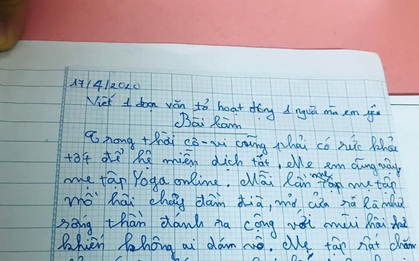 17/4/2020
Viết 1 đoạn văn tả hoạt động 1 người mà em yêu
Bài làm
Trong thời cô-vi cũng phải có sức khỏe
tốt để hệ miễn dịch tốt. Mẹ em cũng vậy
mẹ tập Yoga online. Mỗi lần mẹ tập
mồ hôi chảy đầm đìa, mở cửa rổ là như
sóng thần đánh ra cộng với mùi hôi
khiến không ai dám vô. Mẹ tập rất chăm